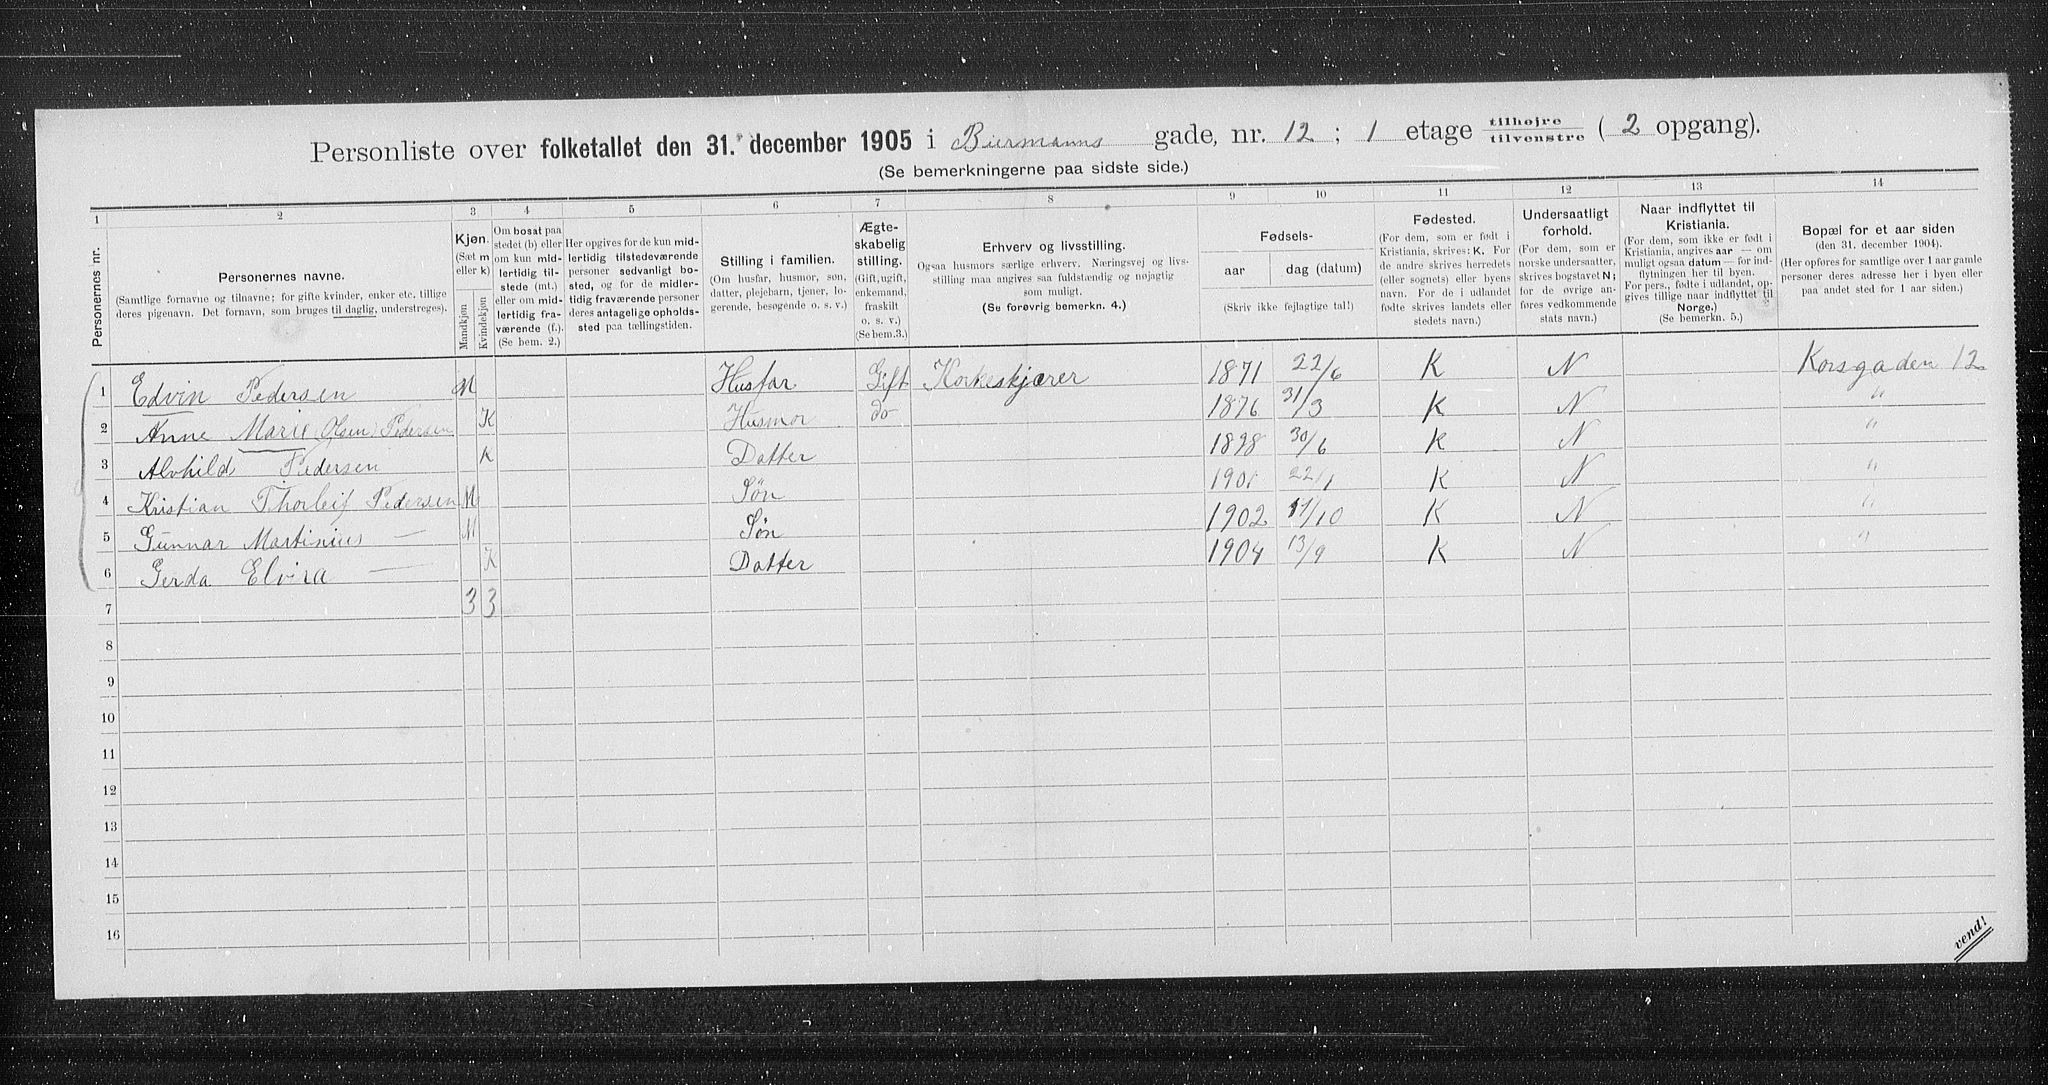 Personliste over folketallet den 31. december 1905 i Biermanns gade, nr. 12 ; 1 etage tilhøjre tilvenstre ( 2 opgang).
(Se bemerkningerne paa sidste side.)
1 2 3 4 5 6 7 8 9 10 11 12 13 14
Personernes nr.
Personernes navne.
(Samtlige fornavne og tilnavne; for gifte kvinder, enker etc. tillige
deres pigenavn. Det fornavn, som bruges til daglig, understreges).
Kjøn.
(Sæt m
eller k)
Mandkjøn
Kvindekjøn
Om bosat paa
stedet (b) eller
om kun mid-
lertidig til-
stede (mt.)
eller om mid-
lertidig fra-
værende (f.).
(Se bem. 2.)
Her opgives for de kun mid-
lertidig tilstedeværende
personer sedvanligt bo-
sted, og for de midler-
tidig fraværende personer
deres antagelige opholds-
sted paa tællingstiden.
Stilling i familien.
(Om husfar, husmor, søn,
datter, plejebarn, tjener, lo-
gerende, besøgende o. s. v.)
Ægte-
skabelig
stilling.
(Gift, ugift,
enkemand,
fraskilt
o. s. v.)
(Se bem.3.)
Erhverv og livsstilling.
Ogsaa husmors særlige erhverv. Næringsvej og livs-
stilling maa angives saa fuldstændig og nøjagtig
som muligt.
(Se forøvrig bemerkn. 4.)
Fødsels-
aar dag (datum)
(Skriv ikke fejlagtige tal!)
Fødested.
(For dem, som er født i
Kristiania, skrives: K. For
de andre skrives herredets
(eller sognets) eller byens
navn. For de i udlandet
fødte skrives landets eller
stedets navn.)
Undersaatligt
forhold.
(For dem, som er
norske undersaatter,
skrives bogstavet N;
for de øvrige an-
føres vedkommende
stats navn.)
Naar indflyttet til
Kristiania.
(For dem, som ikke er født i
Kristiania, angives aar — om
muligt ogsaa datum — for ind-
flytningen her til byen.
For pers., fødte i udlandet, op-
gives tillige naar indflyttet til
Norge.)
(Se bemerkn. 5.)
Bopæl for et aar siden
(den 31. december 1904).
(Her opføres for samtlige over 1 aar gamle
personer deres adresse her i byen eller
paa andet sted for 1 aar siden.)
1 Edvin Pedersen M Husfar Gift Korkeskjærer 1871 22/6 K N Korsgaden 12
2 Anne Marie (Olsen) Pedersen K Husmor do 1876 31/3 K N "
3 Alvhild Pedersen K Datter 1898 30/6 K N "
4 Kristian Thorleif Pedersen M Søn 1901 22/1 K N "
5 Gunnar Martinius — M Søn 1902 /10 K N "
6 Gerda Elvira — K Datter 1904 13/9 K N "
7 3 3
8
9
10
11
12
13
14
15
16
vend!